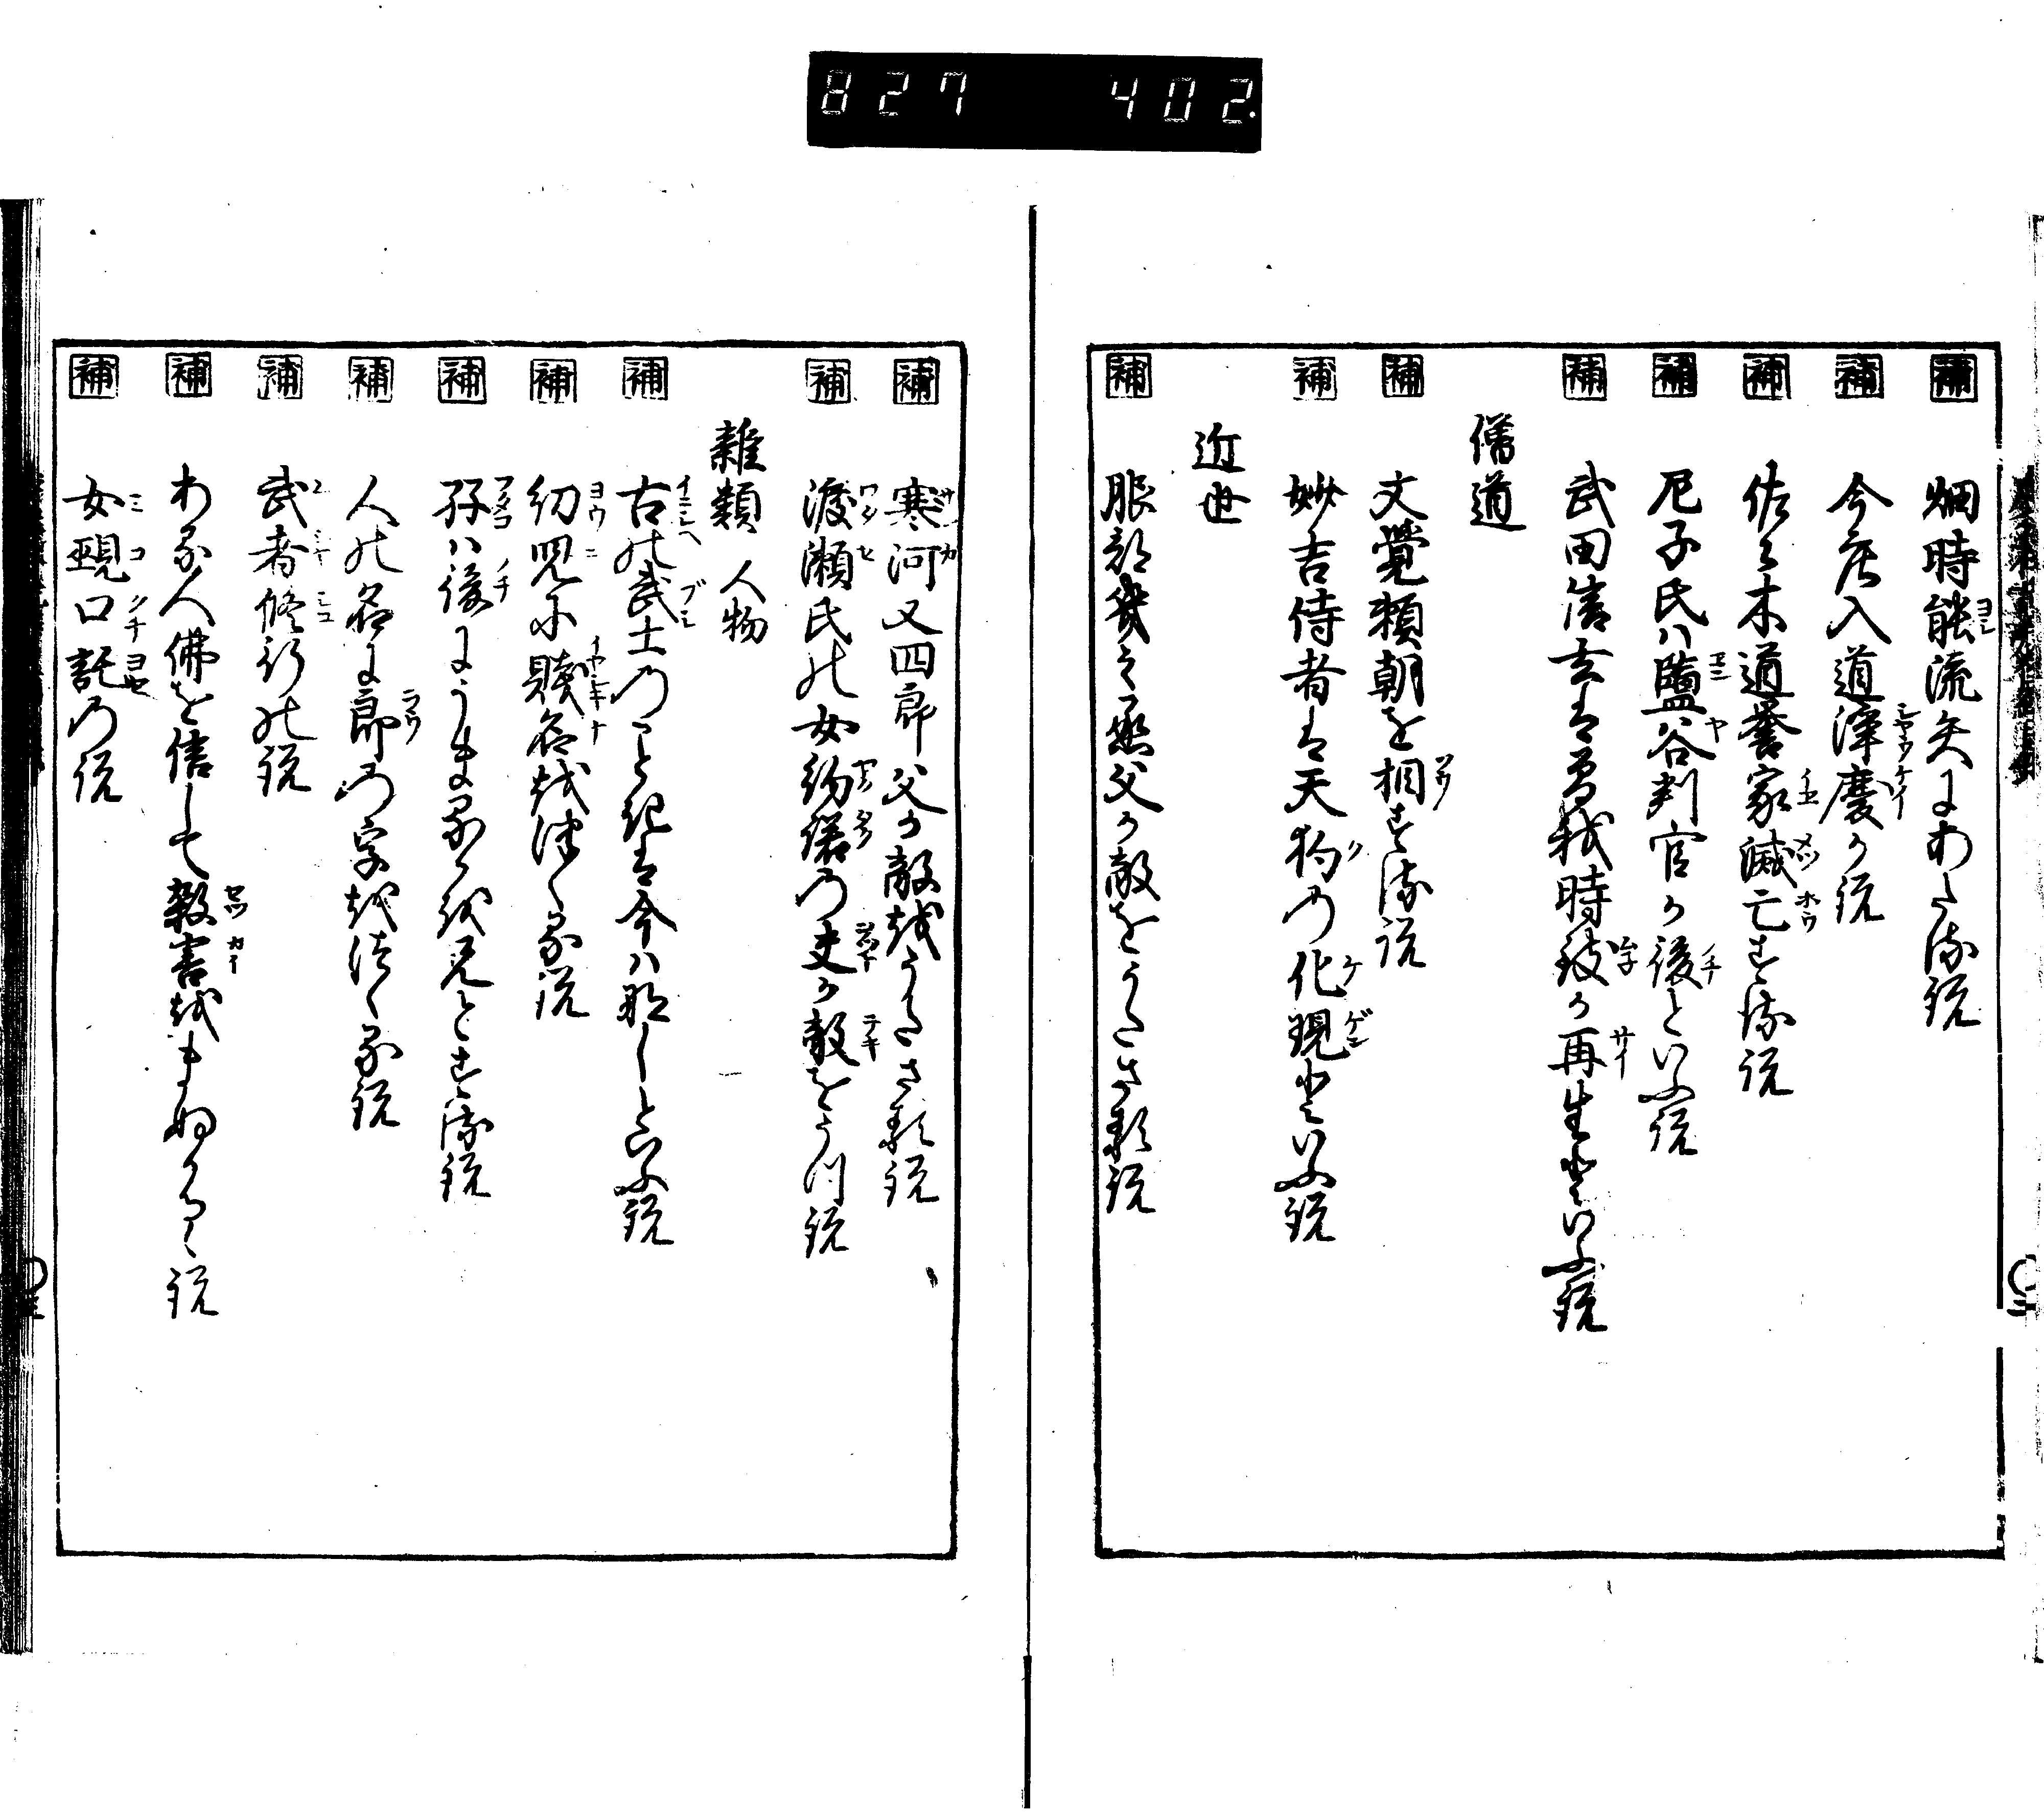 827 402.
補 畑時能流矢にあたる説
補 今庄入道浄慶か説
補 佐々木道誉家滅亡する説
補 尼子氏ハ鹽谷判官か後といふ説
補 武田信玄は曽我時致か再生といふ説
僧道
補 文覺頼朝を相する説
補 妙吉侍者は天狗の化現といふ説
近世
補 服部
補 寒河又四郎父か敵をうたさる説
補 渡瀬氏の女約諾の夫か敵をうつ説
雜類 人物
補 古の武士のこときは今ハ那しといふ説
補 幼児に賤名をつくる説
補 孖ハ後にうまるるを兄とする説
補 人の名に郎の字をつくる説
補 武者修行の説
補 ある人佛を信して殺害をまぬかるゝ説
補 女覡口託の説